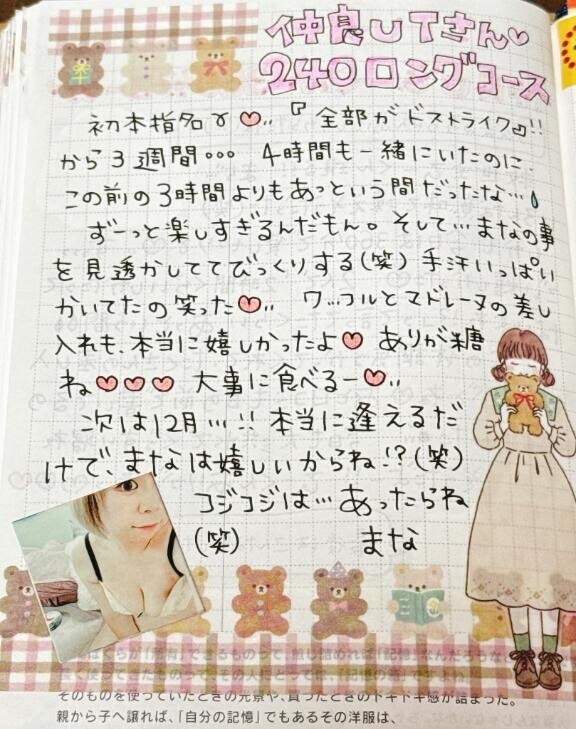 仲良しTさん♡
240ロングコース
初本指名♉♡‥『全部がドストライク』!!
から3週間・・・ 4時間も一緒にいたのに、
この前の3時間よりもあっという間だったな…
ずーっと楽しすぎるんだもん。そして…まなの事
を見透かしててびっくりする(笑) 手汗いっぱい
かいてたの笑った♡‥ ワッフルとマドレーヌの差し
入れも、本当に嬉しかったよ♡ ありが糖
ね♡♡♡ 大事に食べるー♡‥
次は12月…!! 本当に逢えるだ
けで、まなは嬉しいからね!?(笑)
コジコジは…あったらね
(笑) まな
そのものを使っていたときの光景や、買ったときのドキドキ感が詰まった。
親から子へ譲れば、「自分の記憶」でもあるその洋服は、